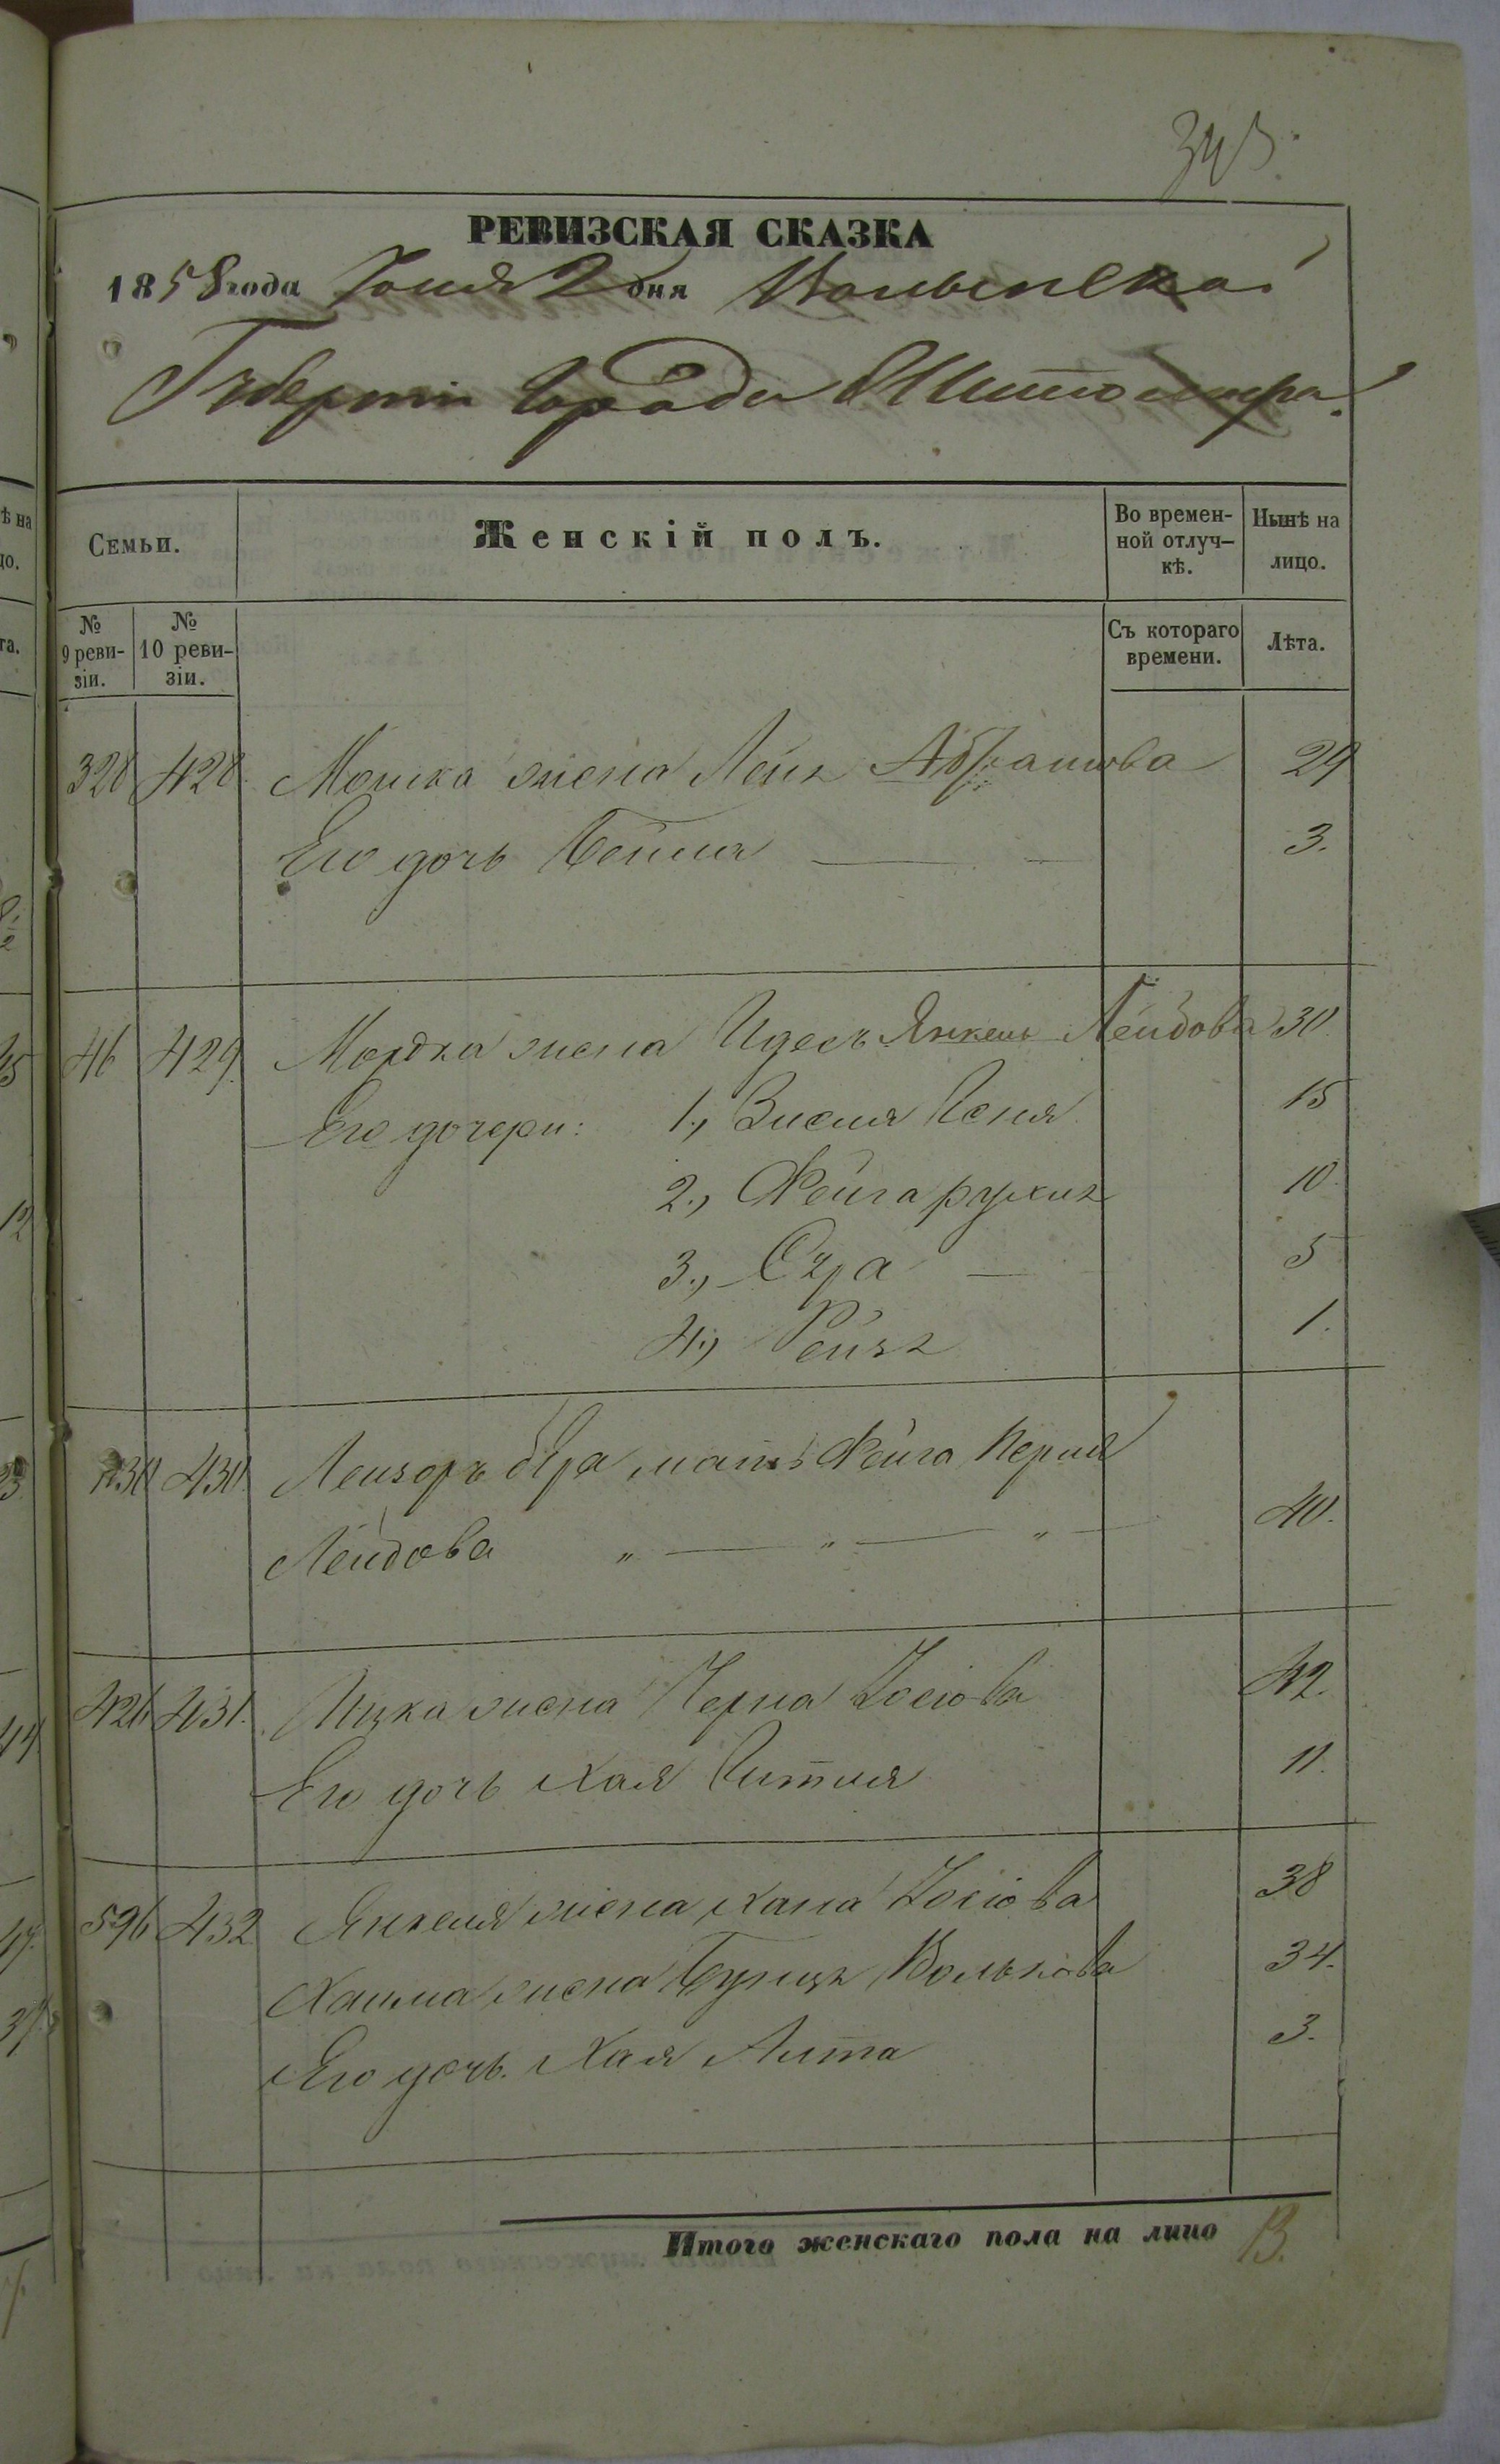 343.
РЕВИЗСКАЯ СКАЗКА
1858 года Іюня 2 дня Волынской
Губерніи Города Житомира.
Семьи. Женскій полъ. Во времен- Нынѣ на
ной отлуч- лицо.
кѣ.
№ № Съ котораго Лѣта.
9 реви- 10 реви- времени.
зіи. зіи.
328 428. Мошка жена Лея Абрамова 29
Его дочь Бейля — — 3.
46 429. Мордка жена Идесъ Янкель Лейбова 30.
Его дочери: 1., Висля Песя 15
2., Фейга рухля 10.
3., Сура — 5
4., Рейзя 1.
430. Лейзоръ бера мать Фейга Перля
Лейбова „ — „ — „ — 40.
426 431. Ицка жена Черна Іосіова 42.
Его дочь Хая Гитля 11.
596 432 Янкеля жена Хана Іосіова 38
Хаима жена Бунця Волькова 34.
Его дочь. Хая Алта 3.
Итого женскаго пола на лицо 13.